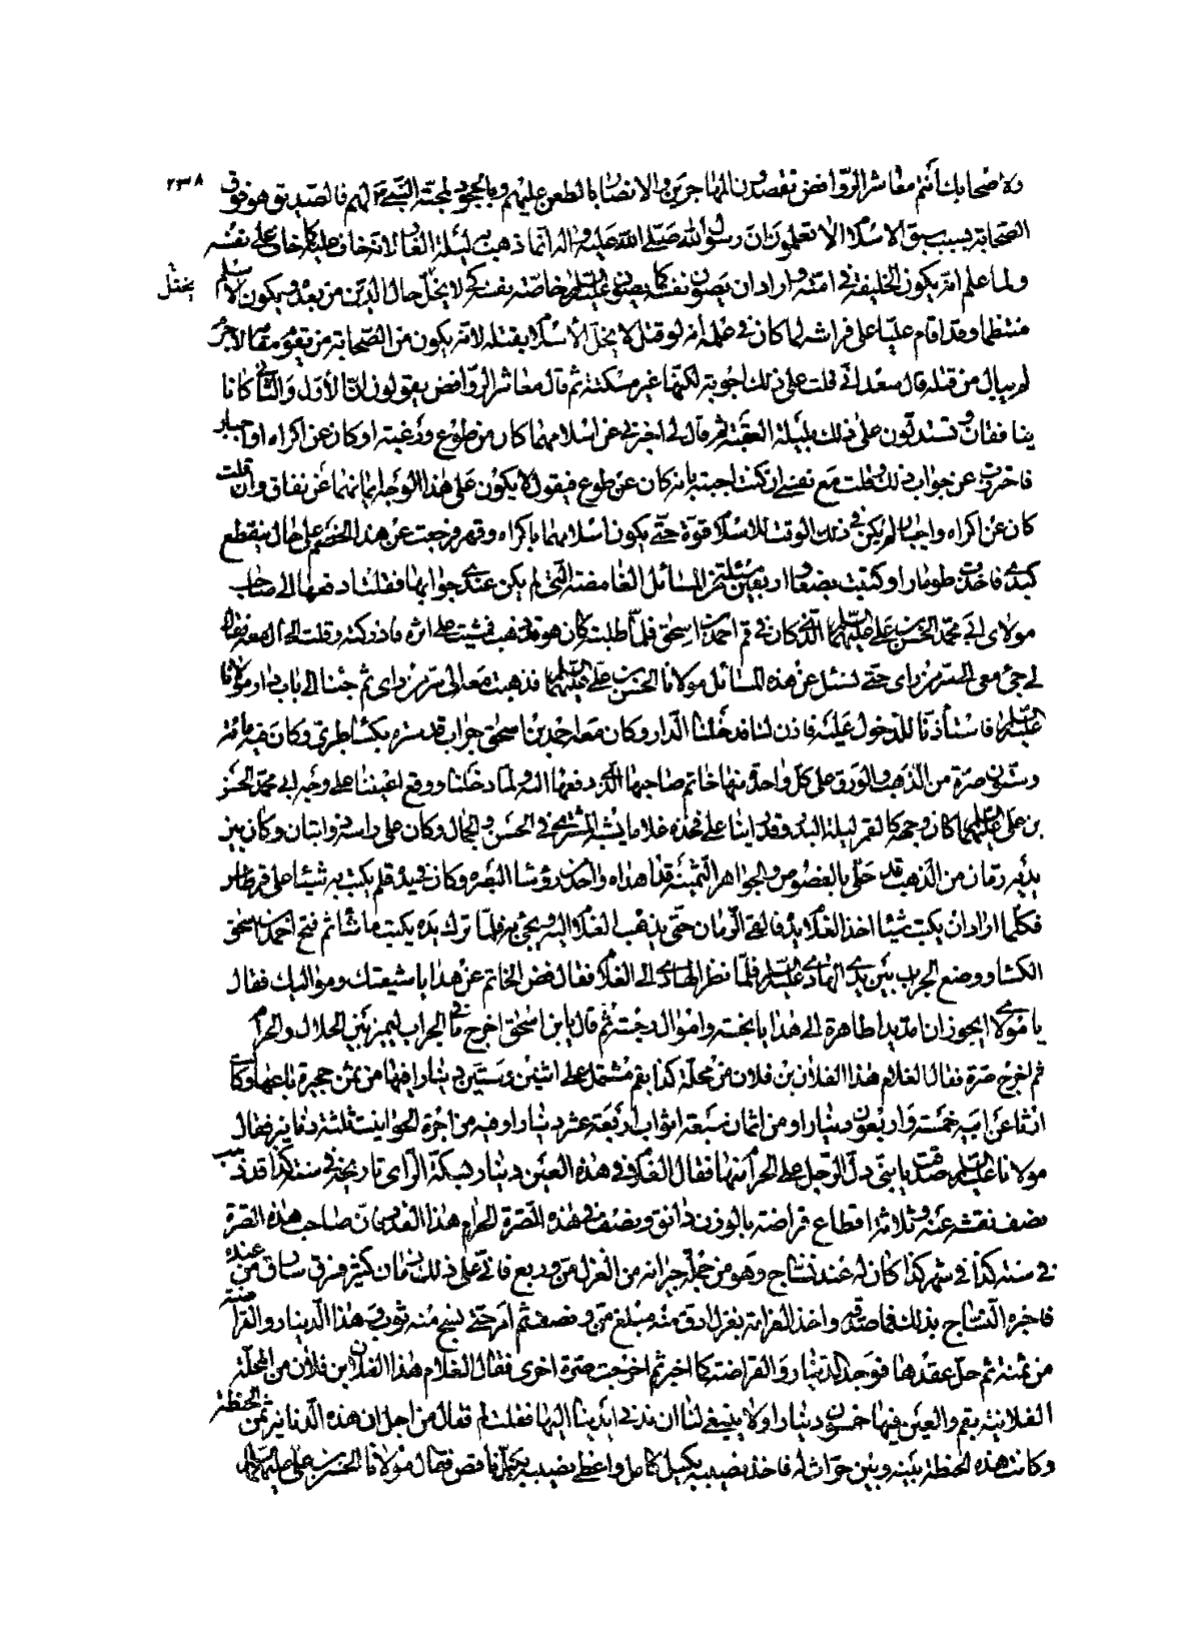 ٢٣٨
ولاصحابك أنتم معاشر الروافض تقصدون المهاجرين والانصار بالطعن عليهم وبالجحود لمحبة النبي لهم فالصديق هو فوق
الصحابة بسبب سبق الاسلام الا تعلمون ان رسول الله صلى الله عليه واله انما ذهب به ليلة الغار لانه خاف عليه كما خاف على نفسه
ولما علم انه يكون الخليفة في امته واراد ان يصون نفسه كما يصون عليه السلم خاصة نفسه كي لا يختل حال الدين من بعده ويكون الاسلام
يختل
منتظما وقد اقام عليا على فراشه لما كان في علمه انه لو قتل لا يختل الاسلام بقتله لانه يكون من الصحابة من يقوم مقامه لا جرم
لم يبال من قتله قال سعد اني قلت على ذلك اجوبة لكنها غير مسكتة ثم قال معاشر الروافض يقولون ان الأول والثاني كانا
ينافقان وتستدلون على ذلك بليلة العقبة ثم قال لي اخبرني عن اسلامهما كان من طوع ورغبة او كان عن اكراه او اجبار
فاحترزت عن جواب ذلك وقلت مع نفسي ان كنت اجبته بانه كان عن طوع فيقول لا يكون على هذا الوجه ايمانهما عن نفاق وان قلت
كان عن اكراه واجبار لم يكن في ذلك الوقت للاسلام قوة حتى يكون اسلامهما باكراه وقهر فرجعت عن هذا الخصم على حال ينقطع
كبدي فاخذت طومارا وكتبت بضعا واربعين مسئلة من المسائل الغامضة التي لم يكن عندي جوابها فقلت ادفعها الى صاحب
مولاي ابي محمد الحسن بن علي عليهما السلم الذي كان في قم احمد بن اسحق فلما طلبته كان هو قد ذهب فمشيت على اثره فادركته وقلت الحال معه فقال
لي جئ معي الى سر من راى حتى نسئل عن هذه المسائل مولانا الحسن بن علي عليهما السلم فذهبت معه الى سر من راى ثم جئنا الى باب دار مولانا
عليه السلم فاستأذنا للدخول عليه فاذن لنا فدخلنا الدار وكان مع احمد بن اسحق جراب قد ستره بكساء طبري وكان فيه مائة
وستون صرة من الذهب والورق على كل واحدة منها خاتم صاحبها الذي دفعها اليه ولما دخلنا ووقع اعيننا على وجه ابي محمد الحسن
بن علي عليهما السلم كان وجهه كالقمر ليلة البدر وقد راينا على فخذه غلاما يشبه المشتري في الحسن والجمال وكان على راسه ذوابتان وكان بين
يديه رمان من الذهب قد حلي بالفصوص والجواهر الثمينة قد اهداه واحد من رؤساء البصرة وكان في يده قلم يكتب به شيئا على قرطاس
فكلما اراد ان يكتب شيئا اخذ الغلام يده فالقى الرمان حتى يذهب الغلام اليه ويجئ به فلما ترك يده يكتب ما شاء ثم فتح احمد بن اسحق
الكساء ووضع الجراب بين يدي الهادي عليه السلم فلما نظر الهادي الى الغلام فقال فض الخاتم عن هدايا شيعتك ومواليك فقال
يا مولاي ايجوز ان امد يدا طاهرة الى هدايا نجسة واموال رجسة ثم قال يا بن اسحق اخرج ما في الجراب ليميز بين الحلال والحرام
ثم اخرج صرة فقال الغلام هذا الفلان بن فلان من محلة كذا بقم مشتمل على اثنين وستين دينارا فيها من ثمن حجيرة باعها وكانت
ارثا عن ابيه خمسة واربعون دينارا ومن اثمان سبعة اثواب اربعة عشر دينارا وفيه من اجرة الحوانيت ثلثة دنانير فقال
مولانا عليه السلم صدقت يا بني دل الرجل على الحرام منها فقال الغلام في هذه العين دينار بسكة الراي تاريخه في سنة كذا قد ذهب
نصف نقشه عنه وثلاثة اقطاع قراضة بالوزن دانق ونصف وهذه الصرة الحرام هذا القدر فان صاحب هذه الصرة
في سنة كذا في شهر كذا كان له عند نساج وهو من جملة جيرانه من الغزل من وربع فاتى على ذلك زمان كثير فسرقه سارق من عنده
فاخبره النساج بذلك فما صدقه واخذ الغرامة بغزل ادق منه مبلغ من ونصف ثم امر حتى نسج منه ثوب وهذا الدينار والقراضة
من ثمنه ثم حل عقدها فوجد الدينار والقراضة كما اخبر ثم اخرجت صرة اخرى فقال الغلام هذا الفلان ابن فلان من المحلة
الفلانية بقم والعين فيها خمسون دينارا ولا ينبغي لنا ان ندني ايدينا اليها فقلت لم فقال من اجل ان هذه الدنانير ثمن الحنطة
وكانت هذه الحنطة بينه وبين حراث له فاخذ نصيبه بكيل كامل واعطى نصيبه بكيل ناقص فقال مولانا الحسن بن علي عليهما السلم